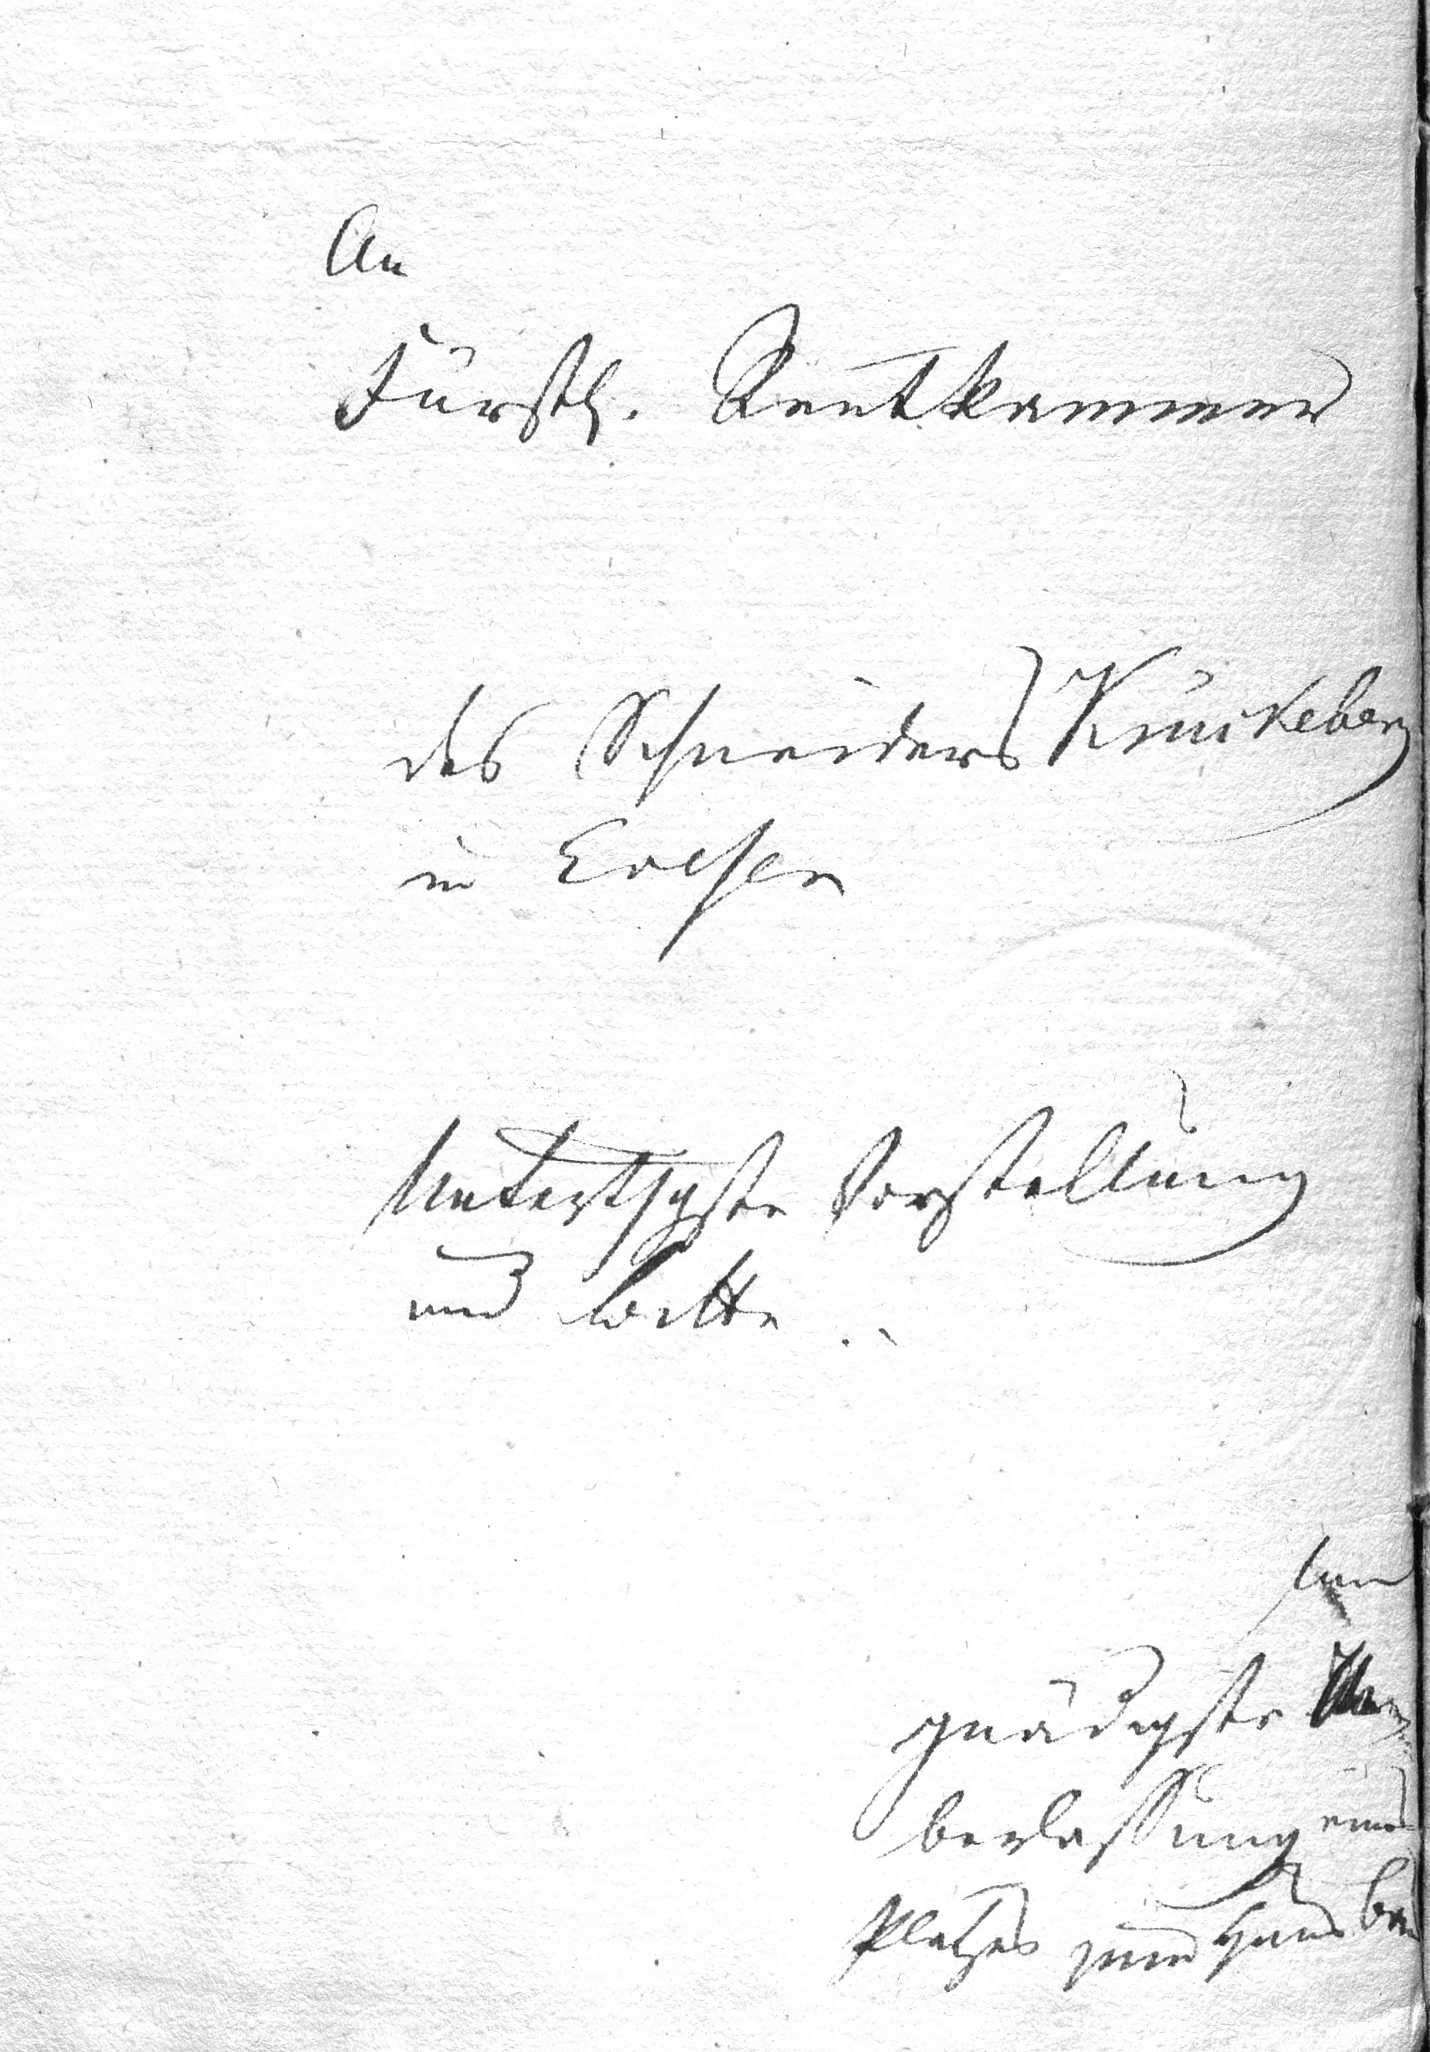 An
Fürstl. Rentkammer
des Schneiders Krückeberg
in Evesen
Unterthgste Vorstellung
und Bitte
um
gnädigste Ue
berlassung eines
Platzes zum Haus bau